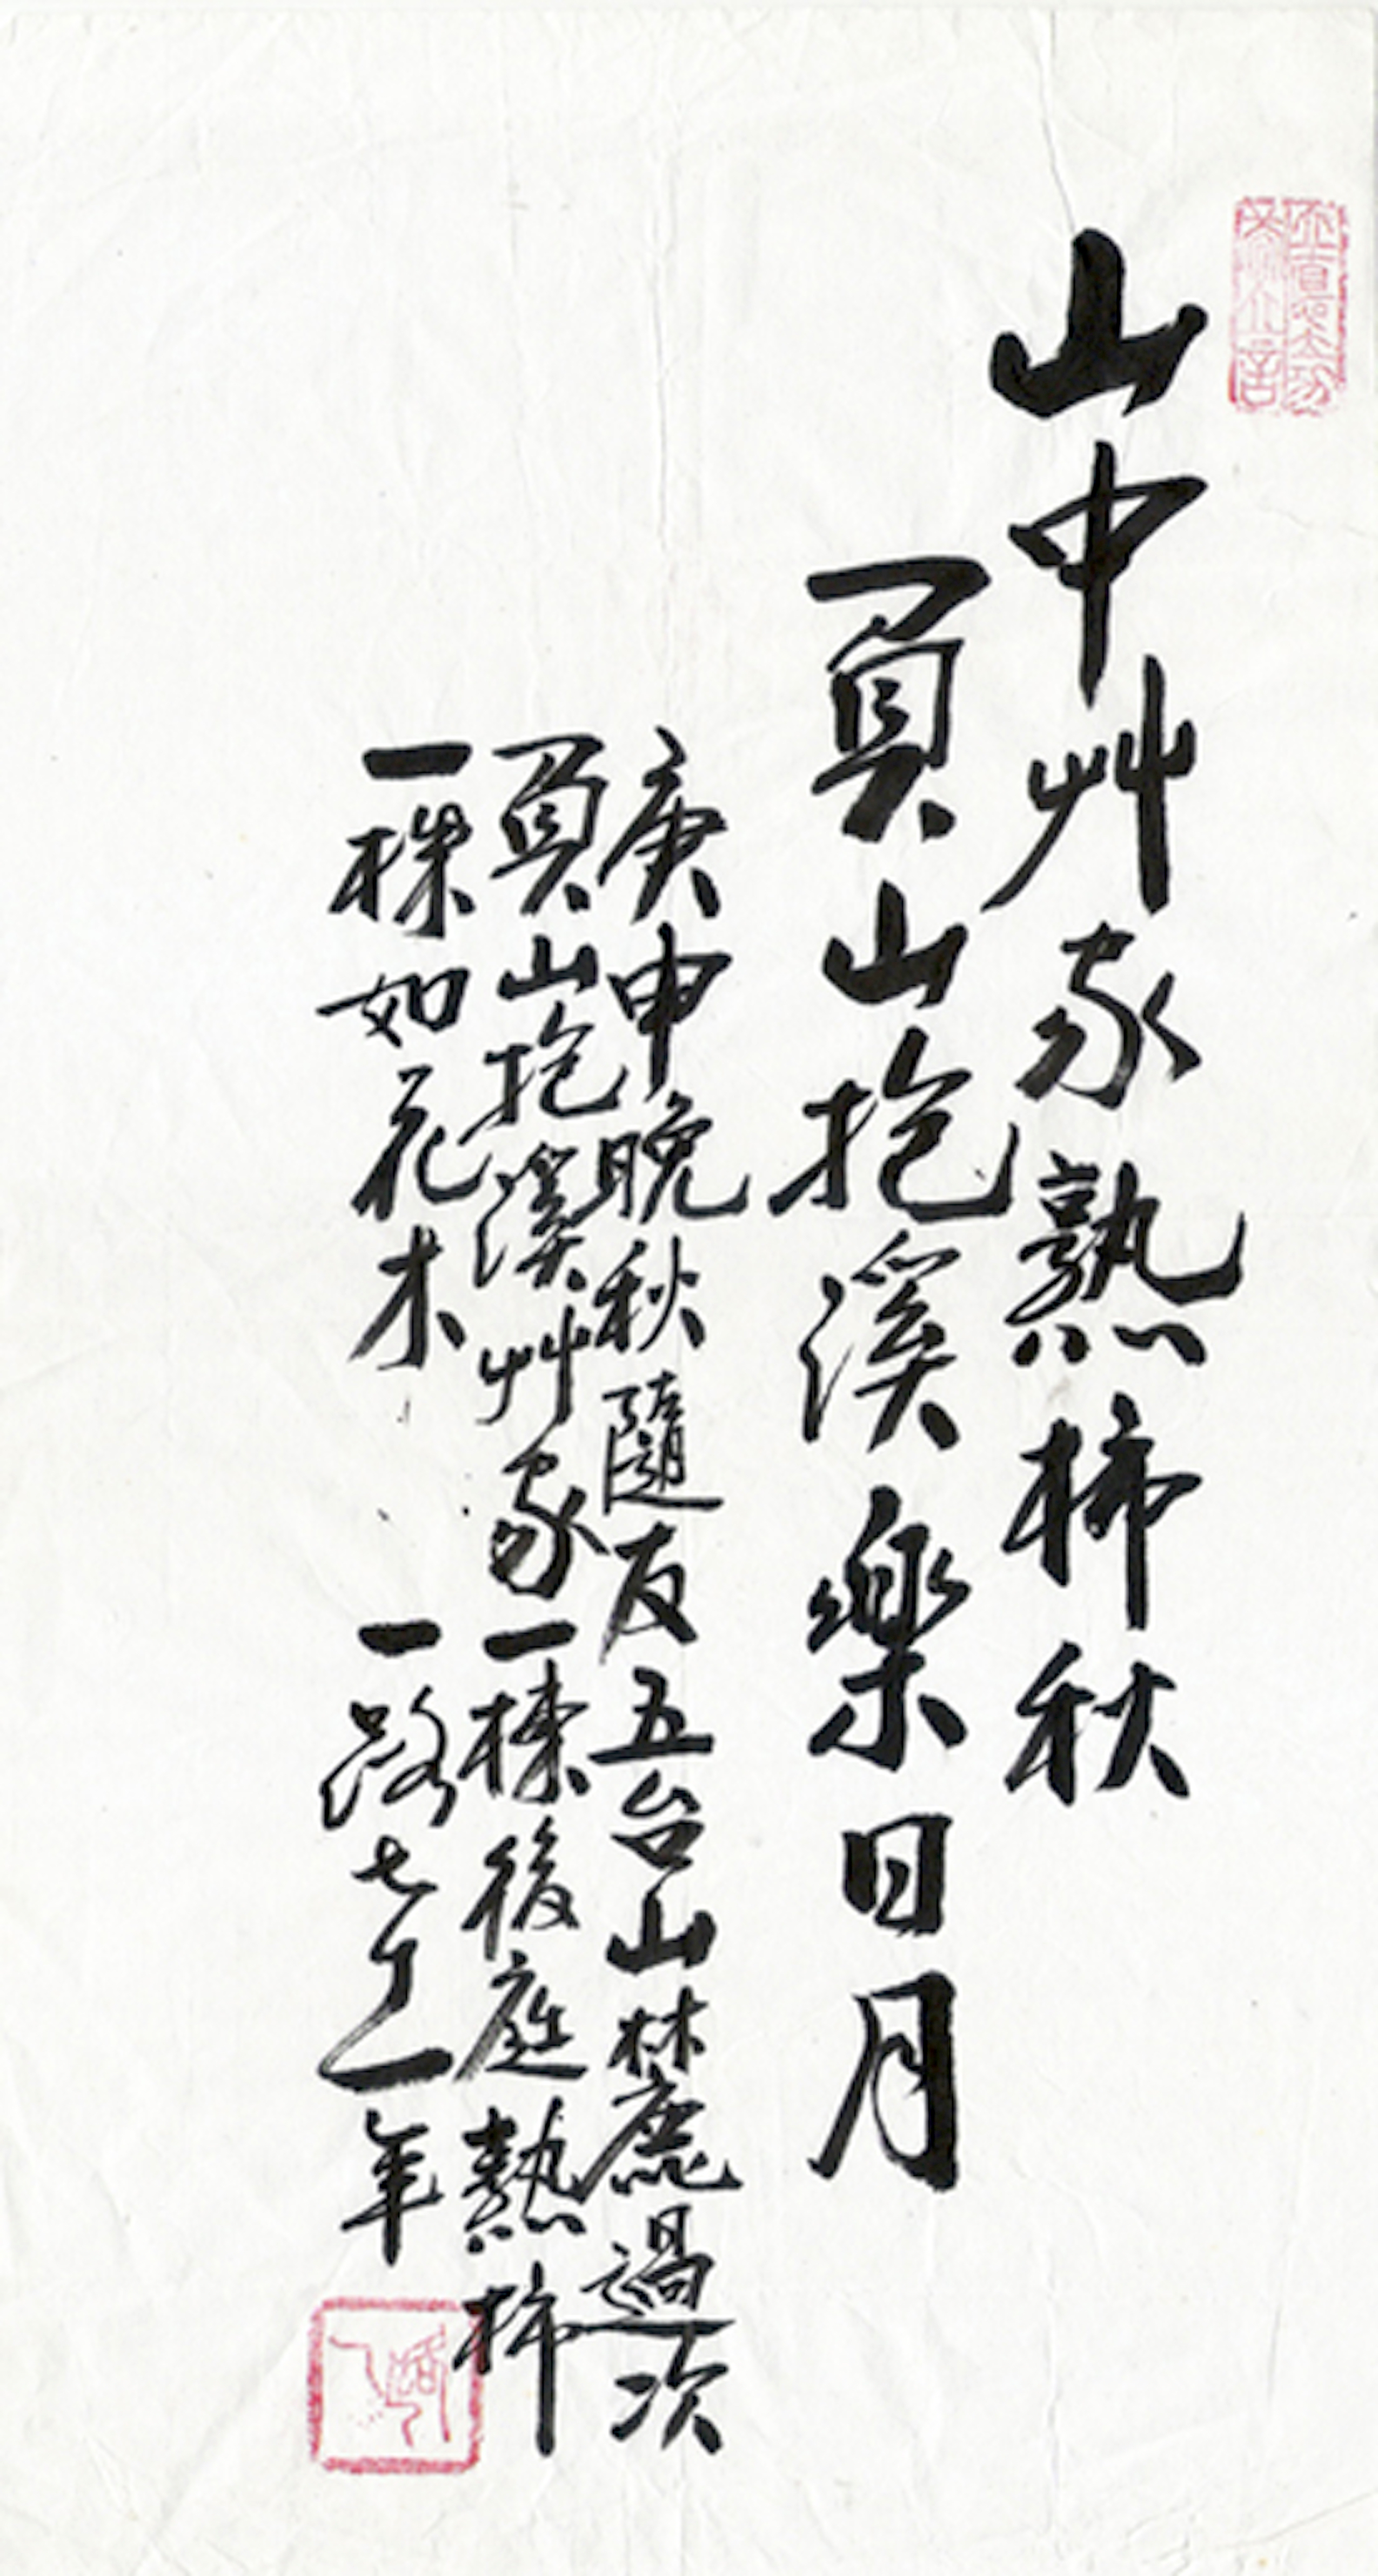 山中艸家熟柿秋
負山抱溪樂日月
庚申晚秋隨友五台山麓過次
負山抱溪艸家一棟後庭熟柿
一株如花木 一路